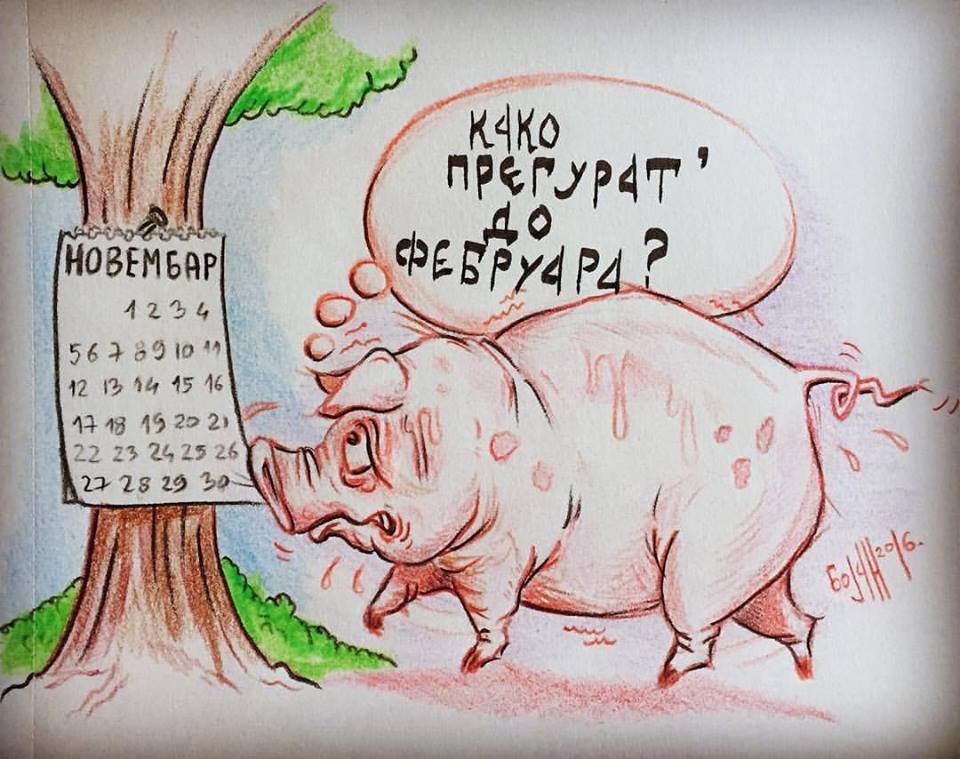 НОВЕМБАР
1 2 3 4
5 6 7 8 9 10 11
12 13 14 15 16
17 18 19 20 21
22 23 24 25 26
27 28 29 30
КАКО
ПРЕГУРАТ'
ДО
ФЕБРУАРА?
БОЈАН 2016.